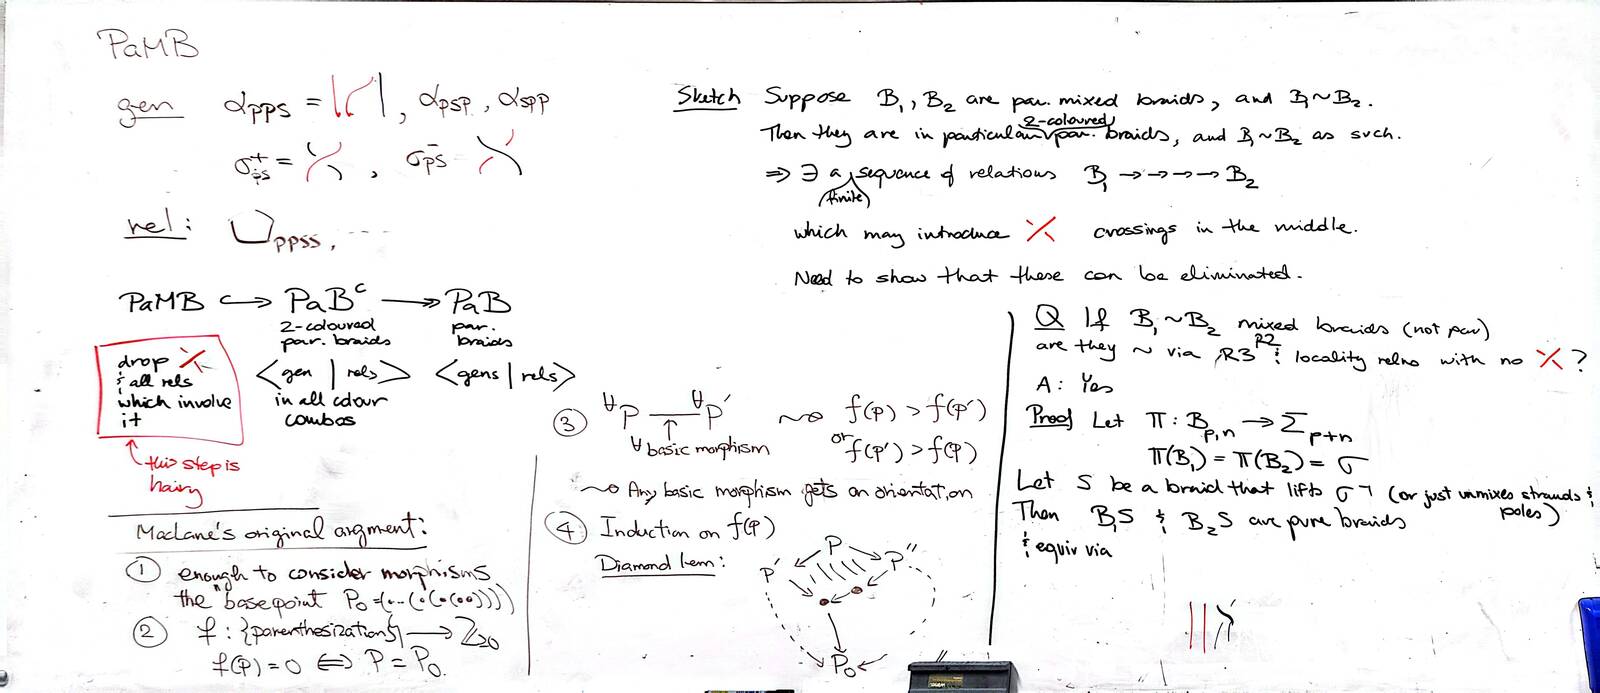 PaMB
gen αpps = , αpsp, αspp
σ⁺ps = , σ⁻ps
rel: ppss, ----
PaMB ↪ PaBᶜ ↠ PaB
2-coloured par. braids
par. braids
drop
& all rels
which involve
it
<gen | rels>
in all colour
combos
<gens | rels>
this step is
hairy
MacLane's original argment:
① enough to consider morphisms
the "basepoint P₀=(..(•(•(••))))
② f : {parenthesizations} → ℤ≥0
f(P)=0 ⇔ P = P₀
③ ∀P — ∀P' ⇝ f(P) > f(P')
∀ basic morphism or f(P') > f(P)
⇝ Any basic morphism gets an orientation
④ Induction on f(P)
Diamond lem:
P
P' P''
P₀
Sketch Suppose B₁, B₂ are par. mixed braids, and B₁~B₂.
Then they are in particular 2-coloured par. braids, and B₁~B₂ as such.
⇒ ∃ a (finite) sequence of relations B₁ →→→→ B₂
which may introduce crossings in the middle.
Need to show that these can be eliminated.
Q If B₁ ~ B₂ mixed braids (not par)
are they ~ via R3 R2 & locality relns with no ?
A: Yes
Proof Let π : B_{p,n} → Σ_{p+n}
π(B₁) = π(B₂) = σ
Let S be a braid that lifts σ⁻¹ (or just unmixes strands & poles)
Then B₁S & B₂S are pure braids
& equiv via